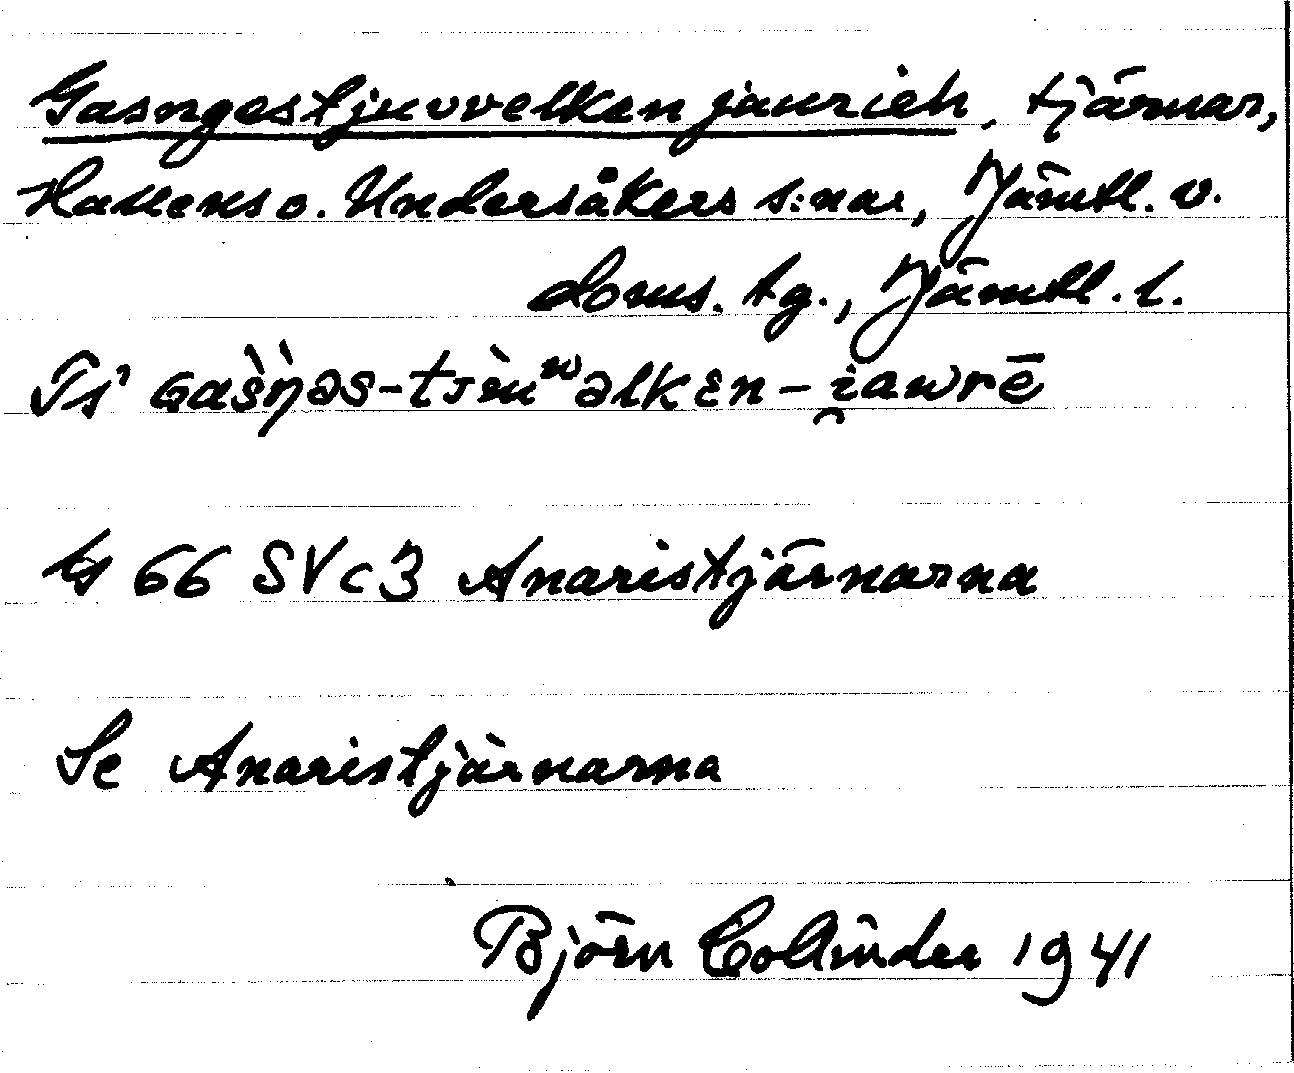 Gasngestjuvvelken jaurieh, tjärnar,
Hallens o. Undersåkers s:nar, Jämtl. v.
doms. tg., Jämtl. l.
Ts' Gašŋəs-tjèuʷəlkɛn-i̯awrē
ts 66 SV c 3 Anaristjärnarna
Se Anaristjärnarna
Björn Collinder 1941